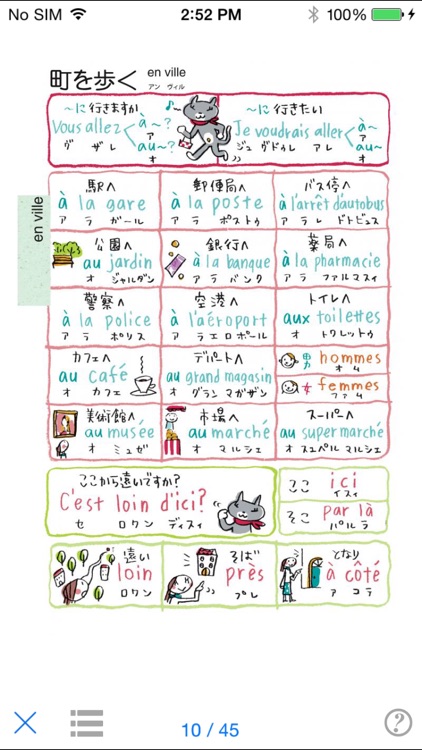 No SIM 2:52 PM 100%
町を歩く en ville
アン ヴィル
〜に行きますか
Vous allez à〜?
au〜?
ヴ ザレ ア
オ
〜に行きたい
Je voudrais aller à〜
au〜
ジュ ヴドゥレ アレ ア
オ
en ville
駅へ
à la gare
ア ラ ガール
郵便局へ
à la poste
ア ラ ポストゥ
バス停へ
à l'arrêt d'autobus
ア ラレ ドトビュス
公園へ
au jardin
オ ジャルダン
銀行へ
à la banque
ア ラ バンク
薬局へ
à la pharmacie
ア ラ ファルマスィ
警察へ
à la police
ア ラ ポリス
空港へ
à l'aéroport
ア ラエロポール
トイレへ
aux toilettes
オ トワレットゥ
カフェへ
au café
オ カフェ
デパートへ
au grand magasin
オ グラン マガザン
男 hommes
オム
女 femmes
ファム
美術館へ
au musée
オ ミュゼ
市場へ
au marché
オ マルシェ
スーパーへ
au supermarché
オ スュペルマルシェ
ここから遠いですか?
C'est loin d'ici?
セ ロワン ディスィ
ここ ici
イスィ
そこ par là
パルラ
遠い
loin
ロワン
そば
près
プレ
となり
à côté
ア コテ
10 / 45
?